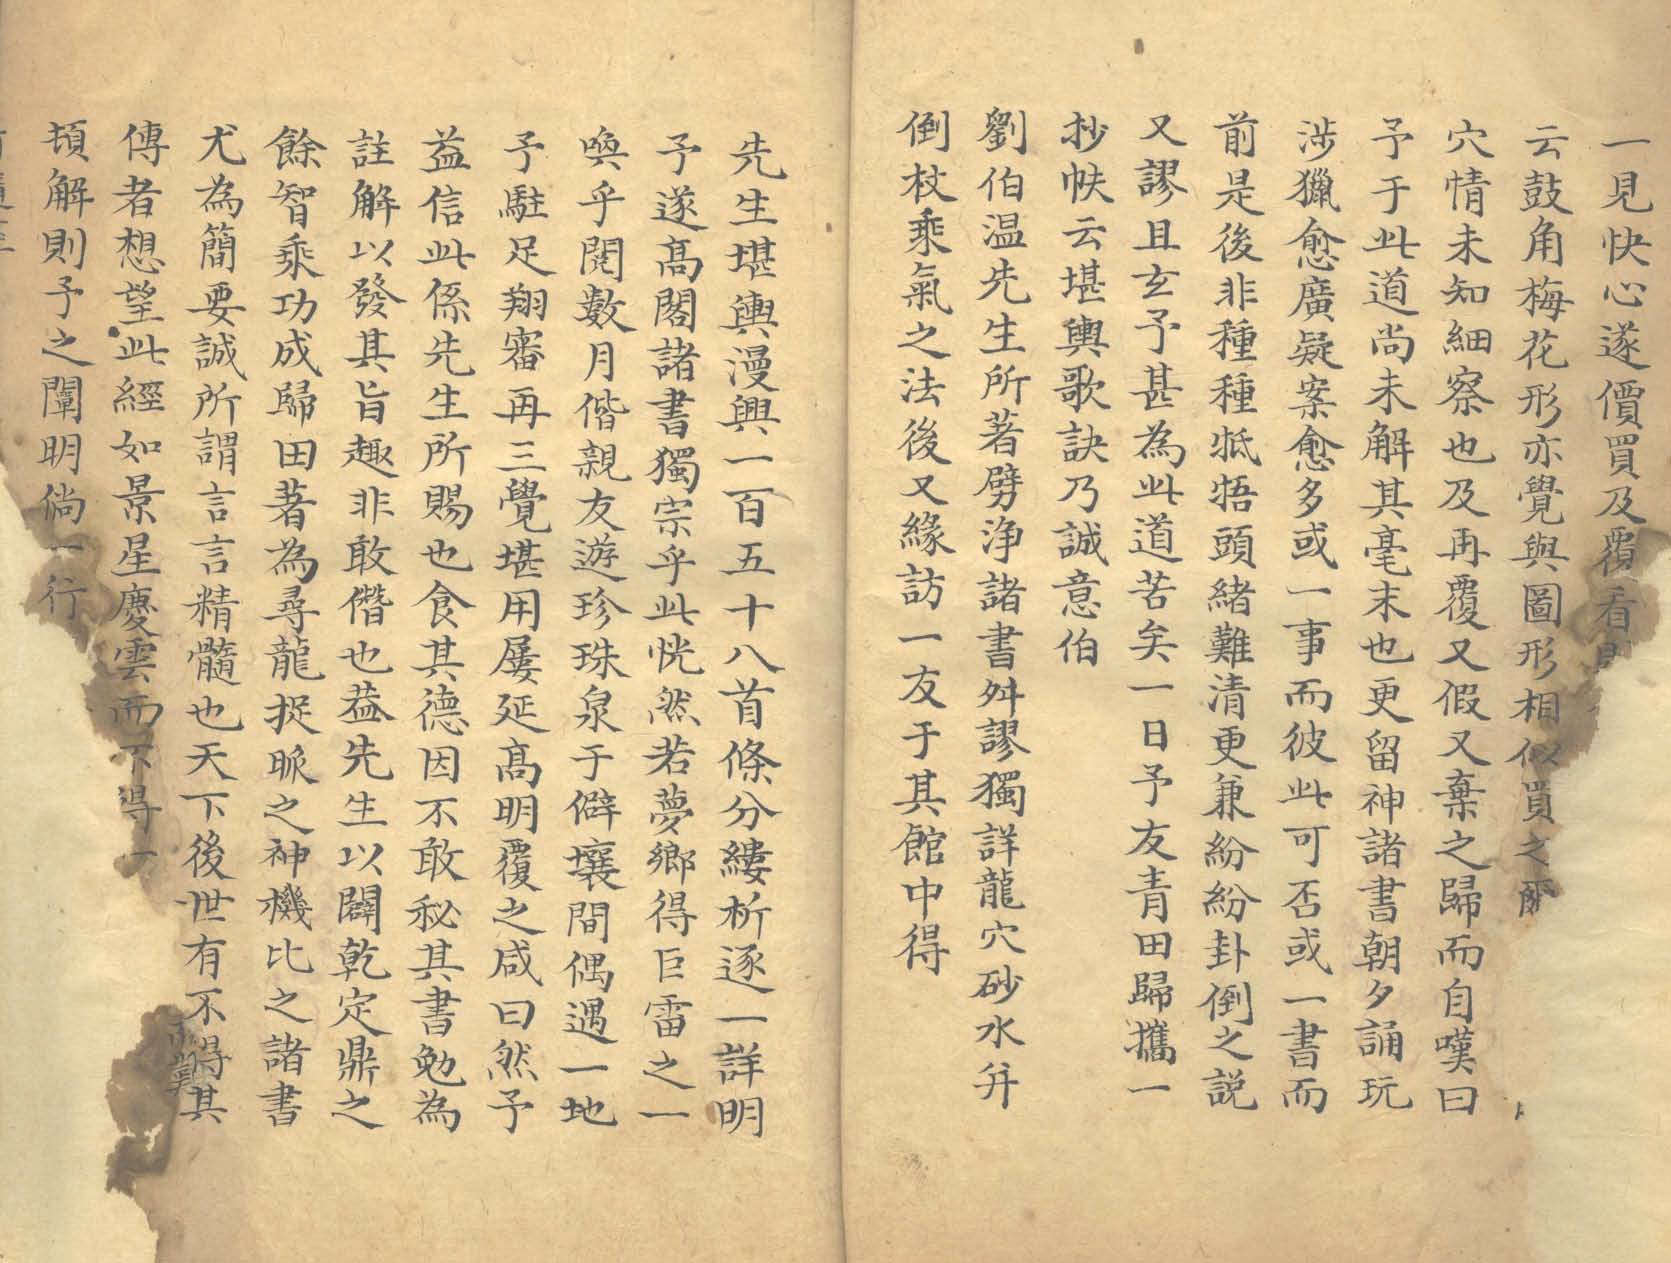 一見快心遂價買及覆看
云鼓角梅花形亦覺與圖形相似買之爾
穴情未知細察也及再覆又假又棄之歸而自嘆曰
予于此道尚未解其毫末也更留神諸書朝夕誦玩
涉獵愈廣疑案愈多或一事而彼此可否或一書而
前是後非種種牴牾頭緒難清更兼紛紛卦倒之説
又謬且玄予甚為此道苦矣一日予友青田歸攜一
抄帙云堪輿歌訣乃誠意伯
劉伯温先生所著劈淨諸書舛謬獨詳龍穴砂水幷
倒杖乘氣之法後又緣訪一友于其館中得
先生堪輿漫興一百五十八首條分縷析逐一詳明
予遂髙閣諸書獨宗乎此恍然若夢鄉得巨雷之一
喚乎閱數月偕親友遊珍珠泉于僻壤間偶遇一地
予駐足翔審再三覺堪用屢延髙明覆之咸曰然予
益信此係先生所賜也食其德因不敢秘其書勉為
註解以發其旨趣非敢僭也葢先生以闢乾定鼎之
餘智乘功成歸田著為尋龍捉脈之神機比之諸書
尤為簡要誠所謂言言精髓也天下後世有不得其
傳者想望此經如景星慶雲而不得一
頓解則予之闡明倘一行